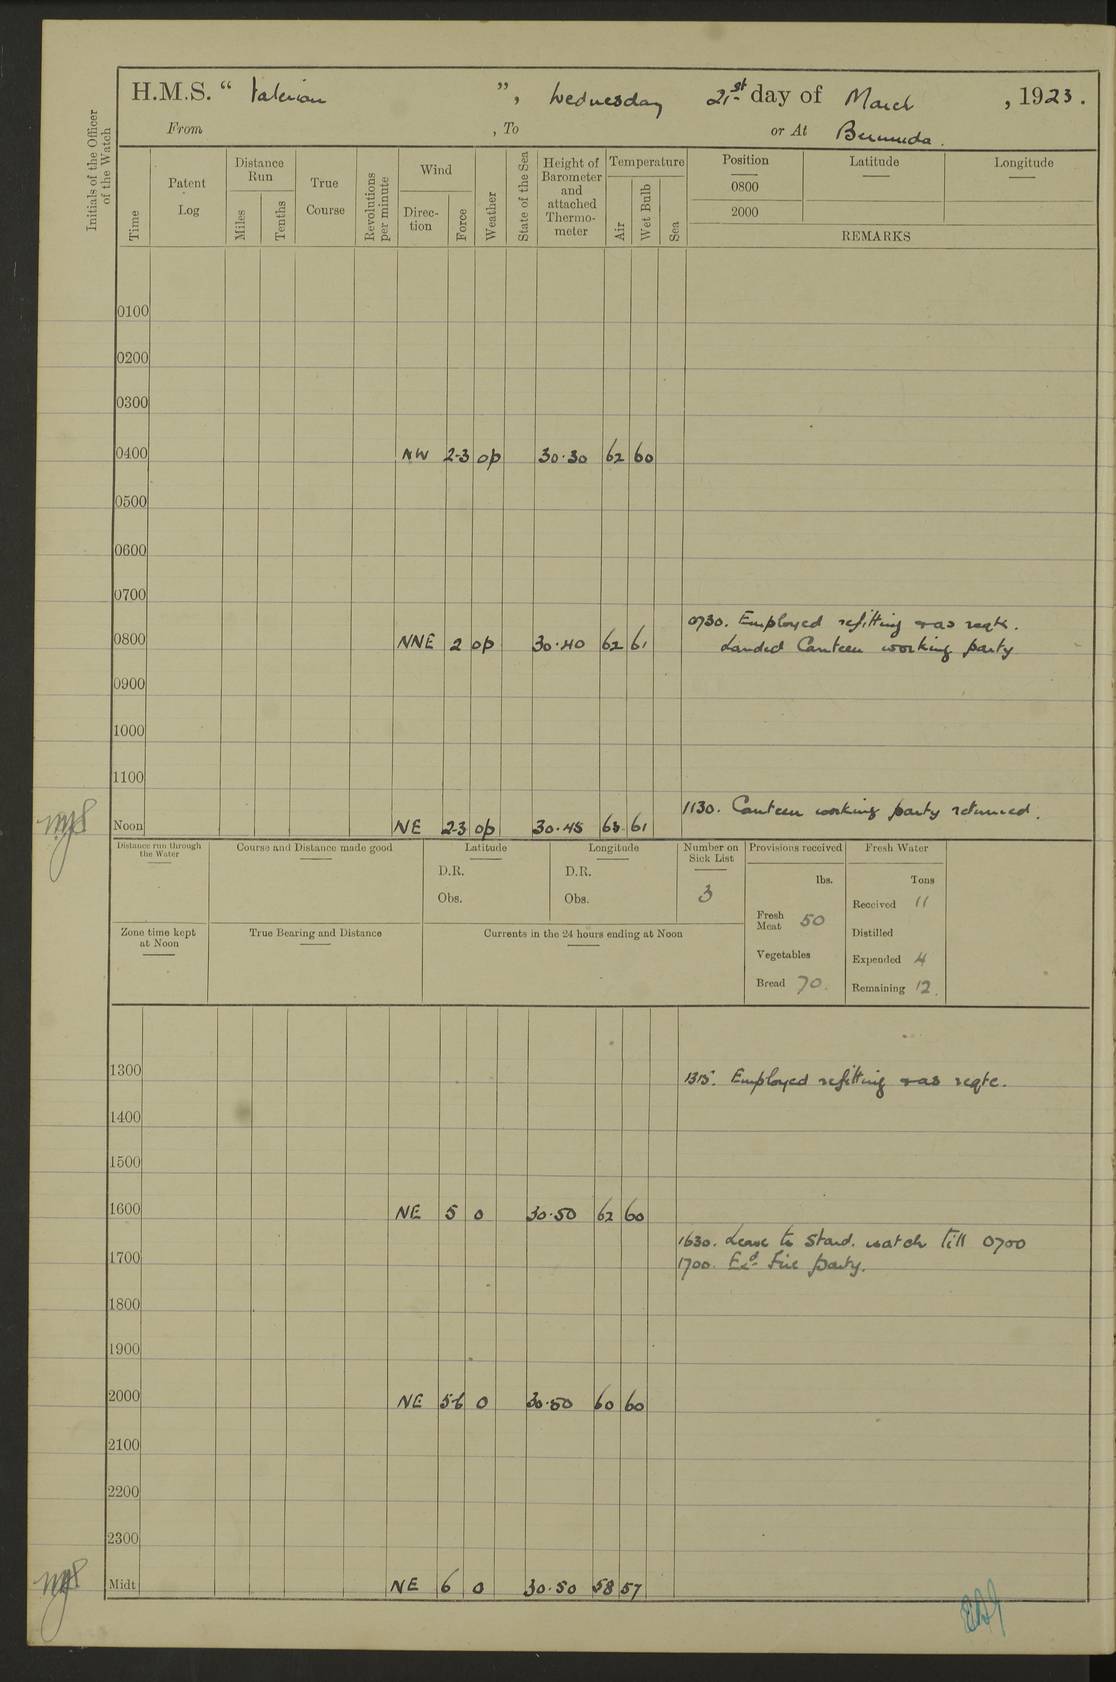 H.M.S. “ Valerian ”, Wednesday 21st day of March , 1923.
From , To or At Bermuda.
Initials of the Officer of the Watch
Time
Patent Log
Distance Run
Miles
Tenths
True Course
Revolutions per minute
Wind
Direc- tion
Force
Weather
State of the Sea
Height of Barometer and attached Thermo- meter
Temperature
Air
Wet Bulb
Sea
Position Latitude Longitude
0800
2000
REMARKS
0100
0200
0300
0400 NW 2-3 op 30.30 62 60
0500
0600
0700
0730. Employed refitting & as reqte.
0800 NNE 2 op 30.40 62 61
Landed Canteen working party
0900
1000
1100
1130. Canteen working party returned.
Noon NE 2-3 op 30.45 63 61
Distance run through the Water
Course and Distance made good
Latitude
D.R.
Obs.
Longitude
D.R.
Obs.
Number on Sick List
3
Provisions received
lbs.
Fresh Meat 50
Vegetables
Bread 70.
Fresh Water
Tons
Received 11
Distilled
Expended 4
Remaining 12.
Zone time kept at Noon
True Bearing and Distance
Currents in the 24 hours ending at Noon
1300 1315. Employed refitting & as reqte.
1400
1500
1600 NE 5 0 30.50 62 60
1630. Leave to Starbd. watch till 0700
1700 1700. Exd. Fire party.
1800
1900
2000 NE 5-6 0 30.50 60 60
2100
2200
2300
Midt NE 6 0 30.50 58 57